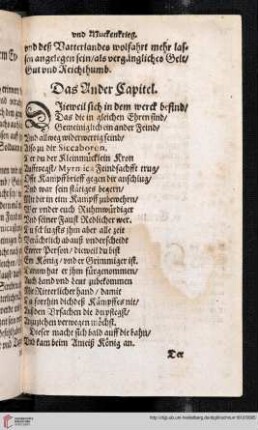 vnd Muckenkrieg.
vnd deß Vatterlandes wolfahrt mehr las-
sen angelegen sein/als vergängliches Gelt/
Gut vnd Reichthumb.
Das Ander Capitel.
Dieweil sich in dem werck befind/
Das die in gleichen Ehren sind/
Gemeiniglich ein ander Feind/
Vnd allweg widerwertig seind/
Also zu dir Siccaboron.
Der du der Kleinmücklein Kron
Aufftregst/ Myrnica Feindschafft trug/
Offt Kampffbrieff gegen dir anschlug/
Vnd war sein stätiges begern/
Mit dir in eim Kampff zubewehrn/
Wer vnder euch Ruhmwürdiger
Vnd seiner Faust Redlicher wer.
Du schlugsts ihm aber alle zeit
Verächtlich ab auß vnderscheidt
Ewrer Person/ dieweil du bist
Ein König/ vnd er Grimmiger ist.
Darumb hat er ihm fürgenommen/
Auch Land vnd Leut zubekommen
Mit Ritterlicher hand/ damit
Du forthin dich deß Kampffes nit/
Auß den Vrsachen die du pflegst/
Abzuziehen verwegen möchst.
Dieser macht sich bald auff die bahn/
Vnd kam beim Ameiß König an.
Der